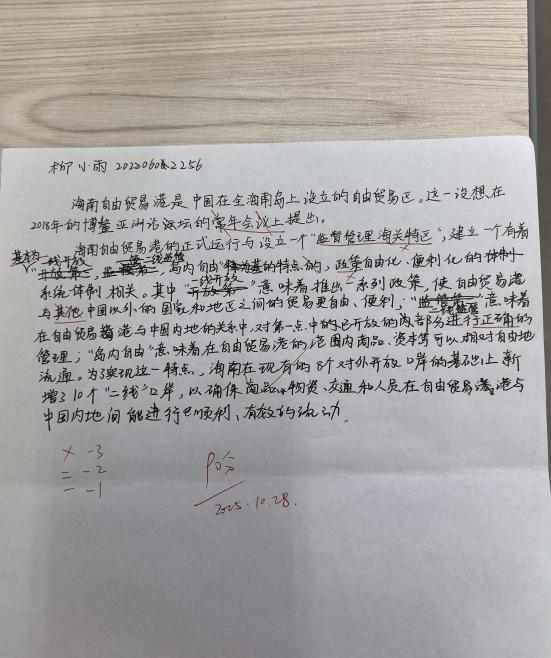 柳小雨 2022060842256
海南自由贸易港是中国在全海南岛上设立的自由贸易区。这一设想在
2018年的博鳌亚洲论坛的常年会议上提出。
海南自由贸易港的正式运行与设立一个"监督管理海关特区",建立一个有着
基本为 一线开放 二线监管
"开放第一,监督第二,岛内自由"为基的特点的,政策自由化、便利化的体制
系统体制相关。其中"一线开放"意味着推出一系列政策,使自由贸易港
与其他中国以外的国家和地区之间的贸易更自由、便利,"二线监管"意味着
在自由贸易港与中国内地的关系中,对第一点中的已开放的内部分进行正确的
管理;"岛内自由"意味着在自由贸易港的范围内商品、资本等可以相对自由地
流通。为实现这一特点,海南在现有的8个对外开放口岸的基础上新
增了10个"二线"口岸,以确保商品、物资、交通和人员在自由贸易港与
中国内地间能进行顺利、有效的流动.
× -3
= -2
- -1
2025.10.28.